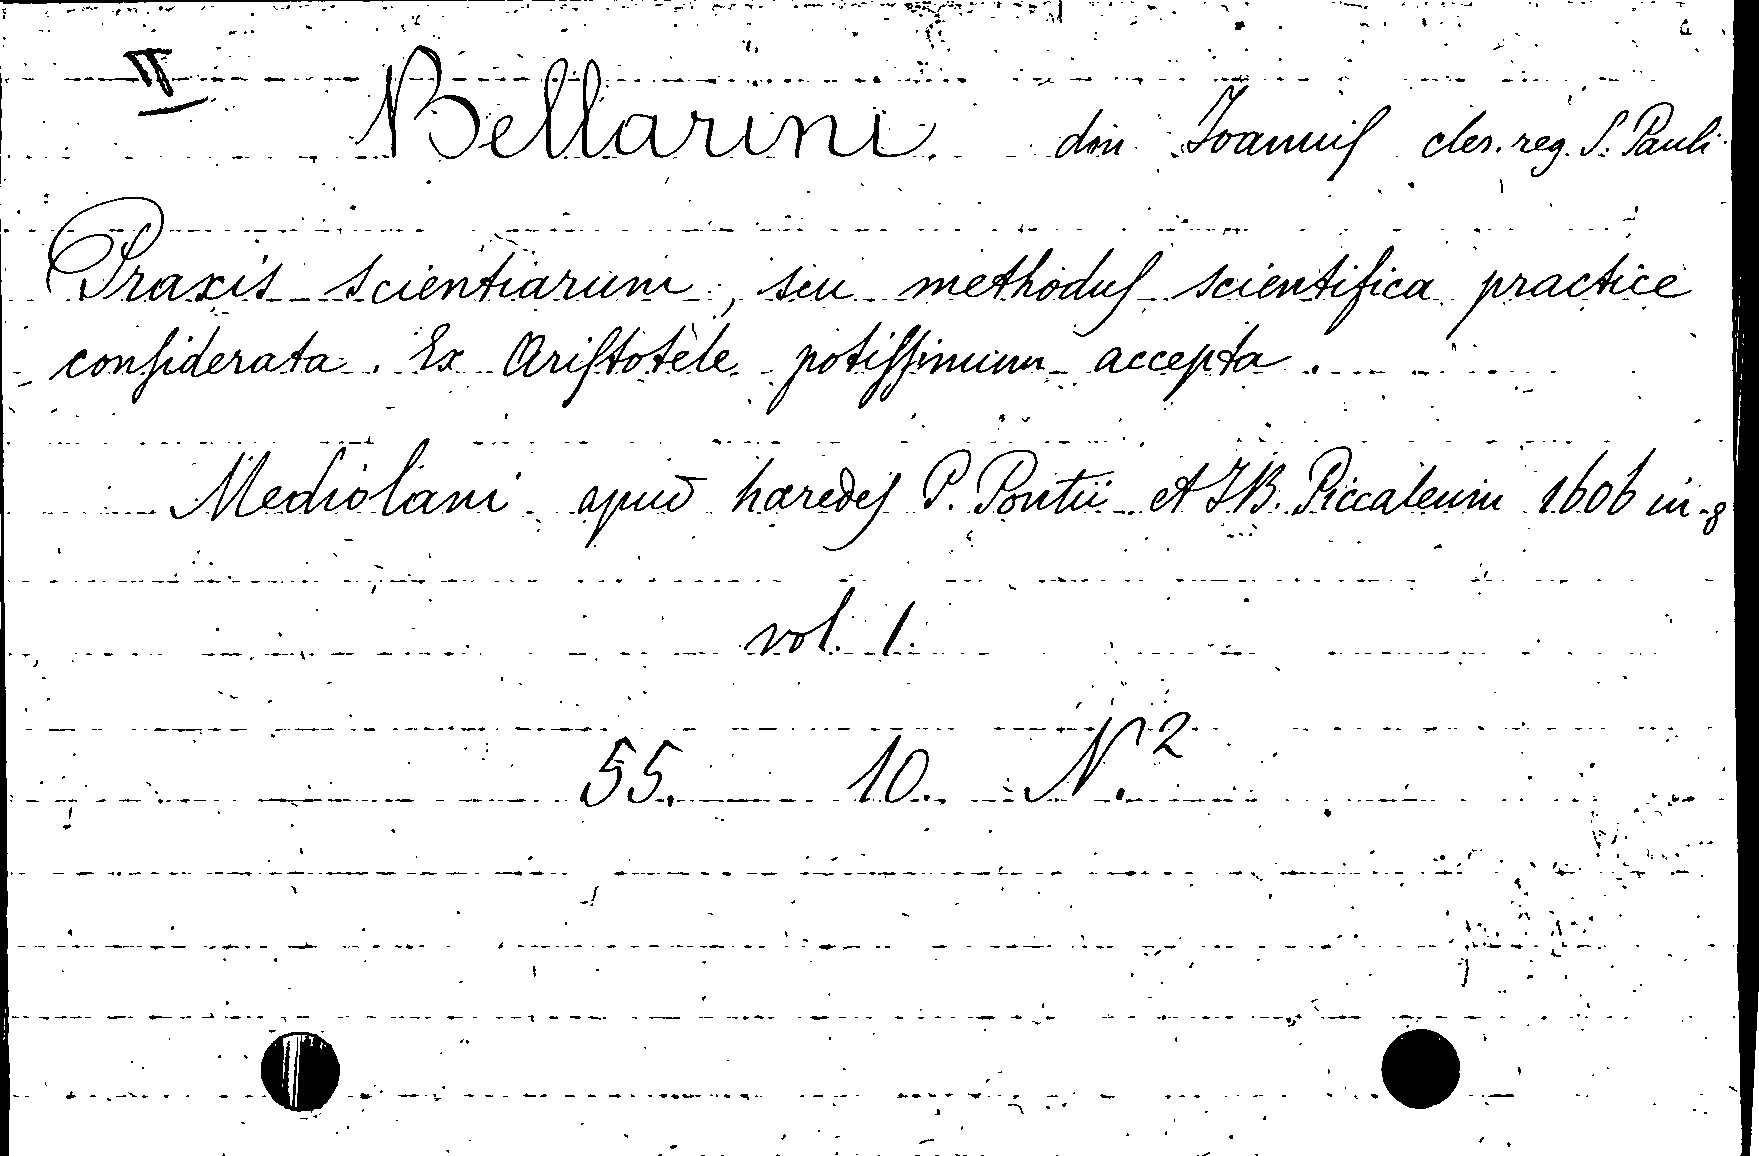 VI Bellarini don Joannis cler. reg. S. Pauli
Praxis scientiarum, seu methodus scientifica practice
considerata. Ex Aristotele potissimum accepta.
Mediolani apud hæredes P. Pontii et J.B. Piccaleum 1606 in-8
vol. 1.
55. 10. N.2